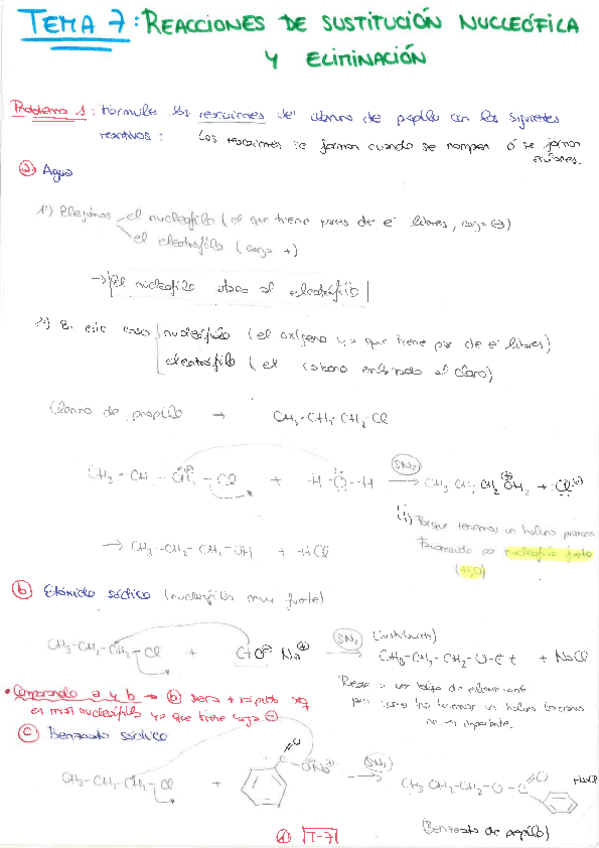 TEMA 7: REACCIONES DE SUSTITUCIÓN NUCLEÓFILA
Y ELIMINACIÓN
Problema 1: Formular las reacciones del cloruro de propilo con los siguientes
reactivos: Las reacciones se forman cuando se rompen ó se forman
enlaces.
a) Agua
1º) Elegimos el nucleófilo (es que tiene pares de e⁻ libres, carga ⊖)
el electrófilo (carga +)
→ ¡El nucleófilo ataca al electrófilo!
2º) En este caso nucleófilo (el oxígeno ya que tiene par de e⁻ libres)
electrófilo (el carbono enlazado al cloro)
Cloruro de propilo → CH₃-CH₂-CH₂-Cl
CH₃-CH₂-CH₂-Cl + H-O-H SN2 → CH₃ CH₂ CH₂ OH₂ + Cl
Porque tenemos un haluro primario
Favorecido por nucleófilo fuerte
(H₂O)
→ CH₃-CH₂-CH₂-OH + HCl
b) Etóxido sódico (nucleófilo muy fuerte)
CH₃-CH₂-CH₂-Cl + EtO⊖ Na⊕ SN2 → CH₃-CH₂-CH₂-O-Et + NaCl
(sustitución)
no es importante.
• Comparando a y b → b) será + rápida xq
es más nucleófilo ya que tiene carga ⊖
c) Benzoato sódico
CH₃-CH₂-CH₂-Cl + C O O⊖Na⊕ SN2 → CH₃ CH₂-CH₂-O-C O + NaCl
(Benzoato de propilo)
① T-7